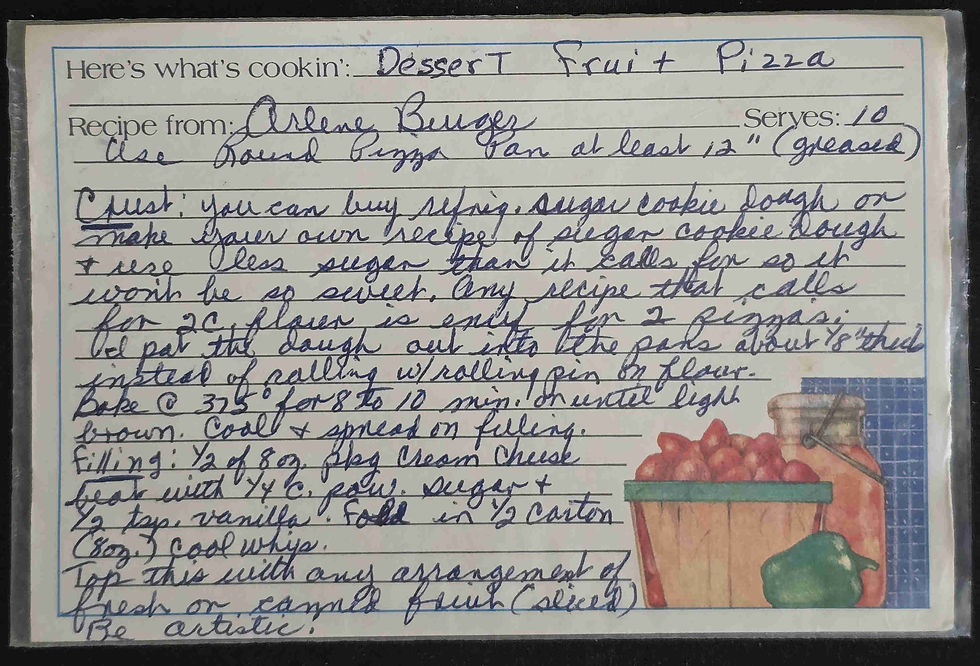 Here's what's cookin': Dessert Fruit Pizza
Recipe from: Arlene Serves: 10
Use Round Pizza Pan at least 12" (greased)
Crust: you can buy refrig. sugar cookie dough or
make your own recipe of sugar cookie dough
& use less sugar than it calls for so it
won't be so sweet. Any recipe that calls
for 2 C. flour is enuf for 2 pizzas.
I pat the dough out into the pans about 1/8" thick
instead of rolling w/ rolling pin on flour.
Bake @ 375° for 8 to 10 min. or until light
brown. Cool & spread on filling.
Filling: 1/2 of 8 oz. pkg Cream Cheese
beat with 1/4 C. pow. sugar &
1/2 tsp. vanilla. Fold in 1/2 carton
(8 oz.) cool whip.
Top this with any arrangement of
fresh or canned fruit (sliced)
Be artistic!